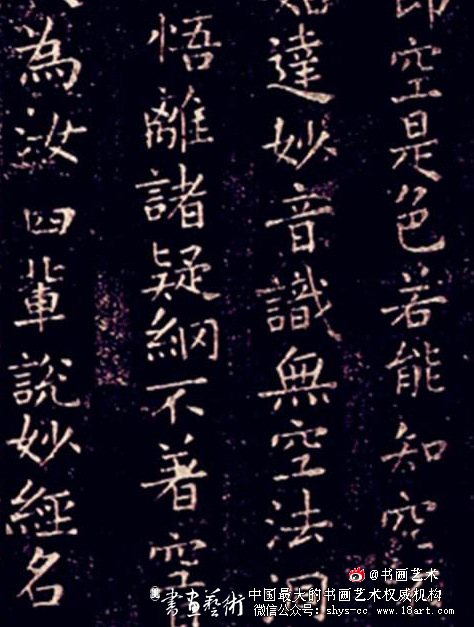 即空是色若能知空
達妙音識無空法
悟離諸疑網不著空
為汝四輩說妙經名
@书画艺术
書畫藝術
中国最大的书画艺术权威机构
微信公众号：shys-cc www.18art.com